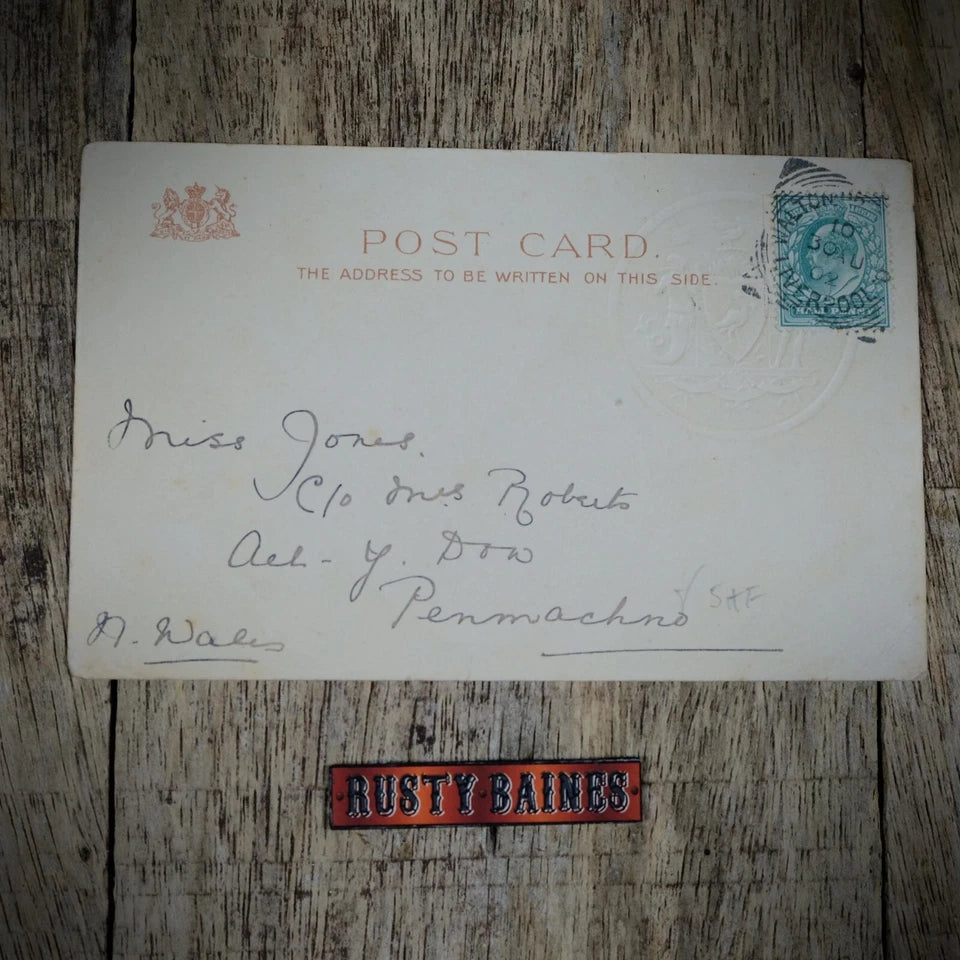 POST CARD.
THE ADDRESS TO BE WRITTEN ON THIS SIDE.
WALTON
10
30 JU
02
LIVERPOOL
HALF PENNY
Miss Jones.
C/o Mrs Roberts
Ael-y. Don
Penmachno
N. Wales
RUSTY BAINES